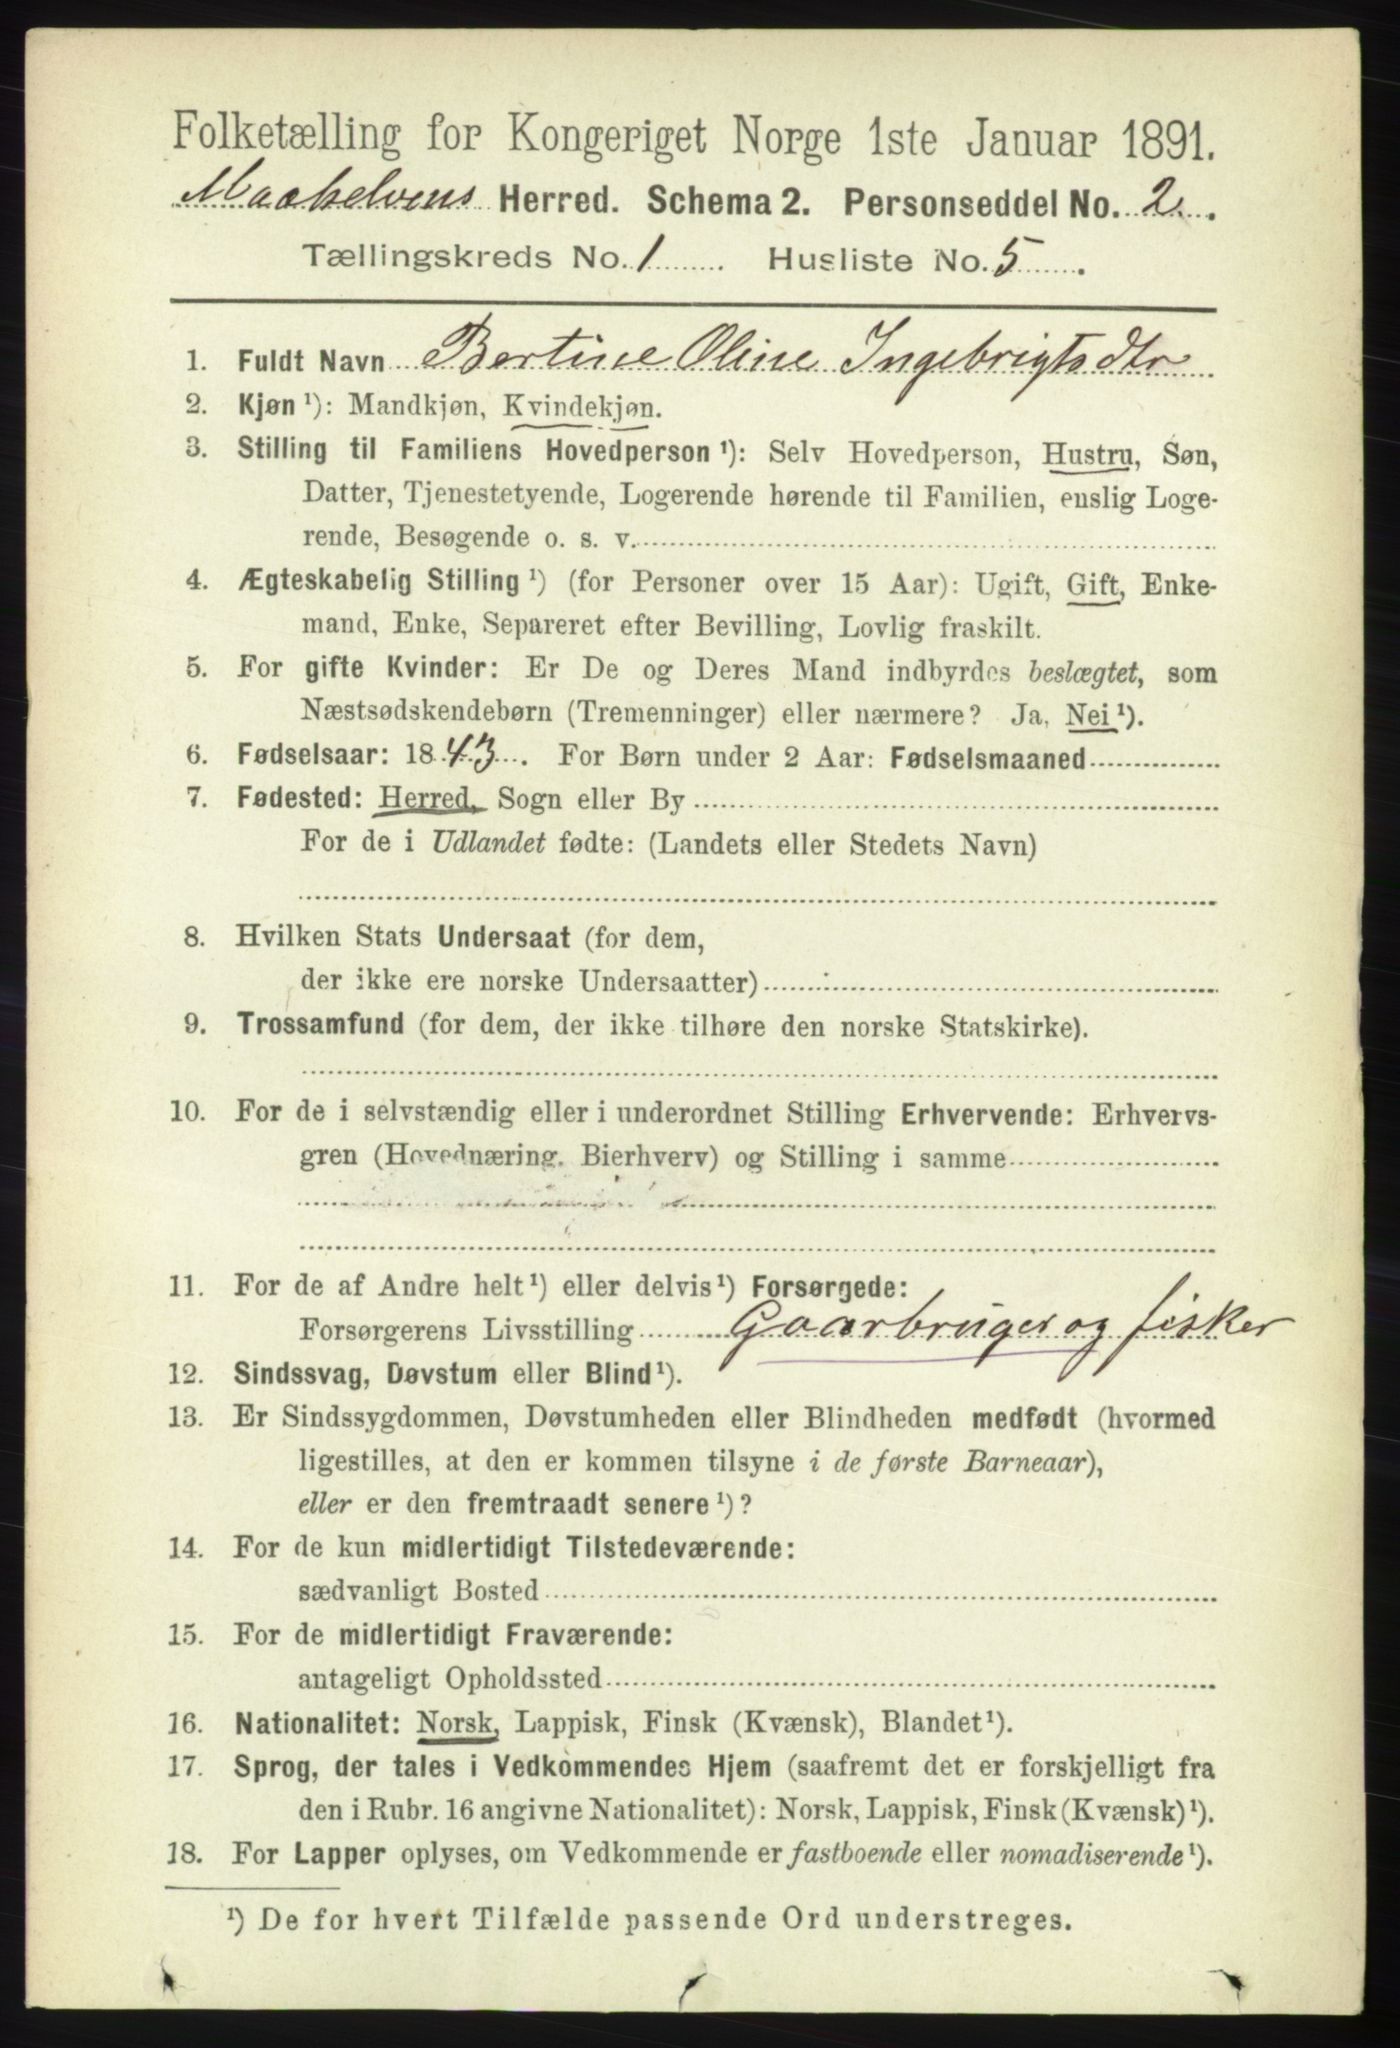 Folketælling for Kongeriget Norge 1ste Januar 1891.
Maaselvens Herred. Schema 2. Personseddel No. 2.
Tællingskreds No. 1. Husliste No. 5.
1. Fuldt Navn Bertine Oline Ingebrigtsdtr
2. Kjøn ¹): Mandkjøn, Kvindekjøn.
3. Stilling til Familiens Hovedperson ¹): Selv Hovedperson, Hustru, Søn,
Datter, Tjenestetyende, Logerende hørende til Familien, enslig Loge-
rende, Besøgende o. s. v.
4. Ægteskabelig Stilling ¹) (for Personer over 15 Aar): Ugift, Gift, Enke-
mand, Enke, Separeret efter Bevilling, Lovlig fraskilt.
5. For gifte Kvinder: Er De og Deres Mand indbyrdes beslægtet, som
Næstsødskendebørn (Tremenninger) eller nærmere? Ja, Nei ¹).
6. Fødselsaar: 1843. For Børn under 2 Aar: Fødselsmaaned
7. Fødested: Herred, Sogn eller By
For de i Udlandet fødte: (Landets eller Stedets Navn)
8. Hvilken Stats Undersaat (for dem,
der ikke ere norske Undersaatter)
9. Trossamfund (for dem, der ikke tilhøre den norske Statskirke).
10. For de i selvstændig eller i underordnet Stilling Erhvervende: Erhvervs-
gren (Hovednæring, Bierhverv) og Stilling i samme
11. For de af Andre helt ¹) eller delvis ¹) Forsørgede:
Forsørgerens Livsstilling Gaarbruger og fisker
12. Sindssvag, Døvstum eller Blind ¹).
13. Er Sindssygdommen, Døvstumheden eller Blindheden medfødt (hvormed
ligestilles, at den er kommen tilsyne i de første Barneaar),
eller er den fremtraadt senere ¹)?
14. For de kun midlertidigt Tilstedeværende:
sædvanligt Bosted
15. For de midlertidigt Fraværende:
antageligt Opholdssted
16. Nationalitet: Norsk, Lappisk, Finsk (Kvænsk), Blandet ¹).
17. Sprog, der tales i Vedkommendes Hjem (saafremt det er forskjelligt fra
den i Rubr. 16 angivne Nationalitet): Norsk, Lappisk, Finsk (Kvænsk) ¹).
18. For Lapper oplyses, om Vedkommende er fastboende eller nomadiserende ¹).
¹) De for hvert Tilfælde passende Ord understreges.